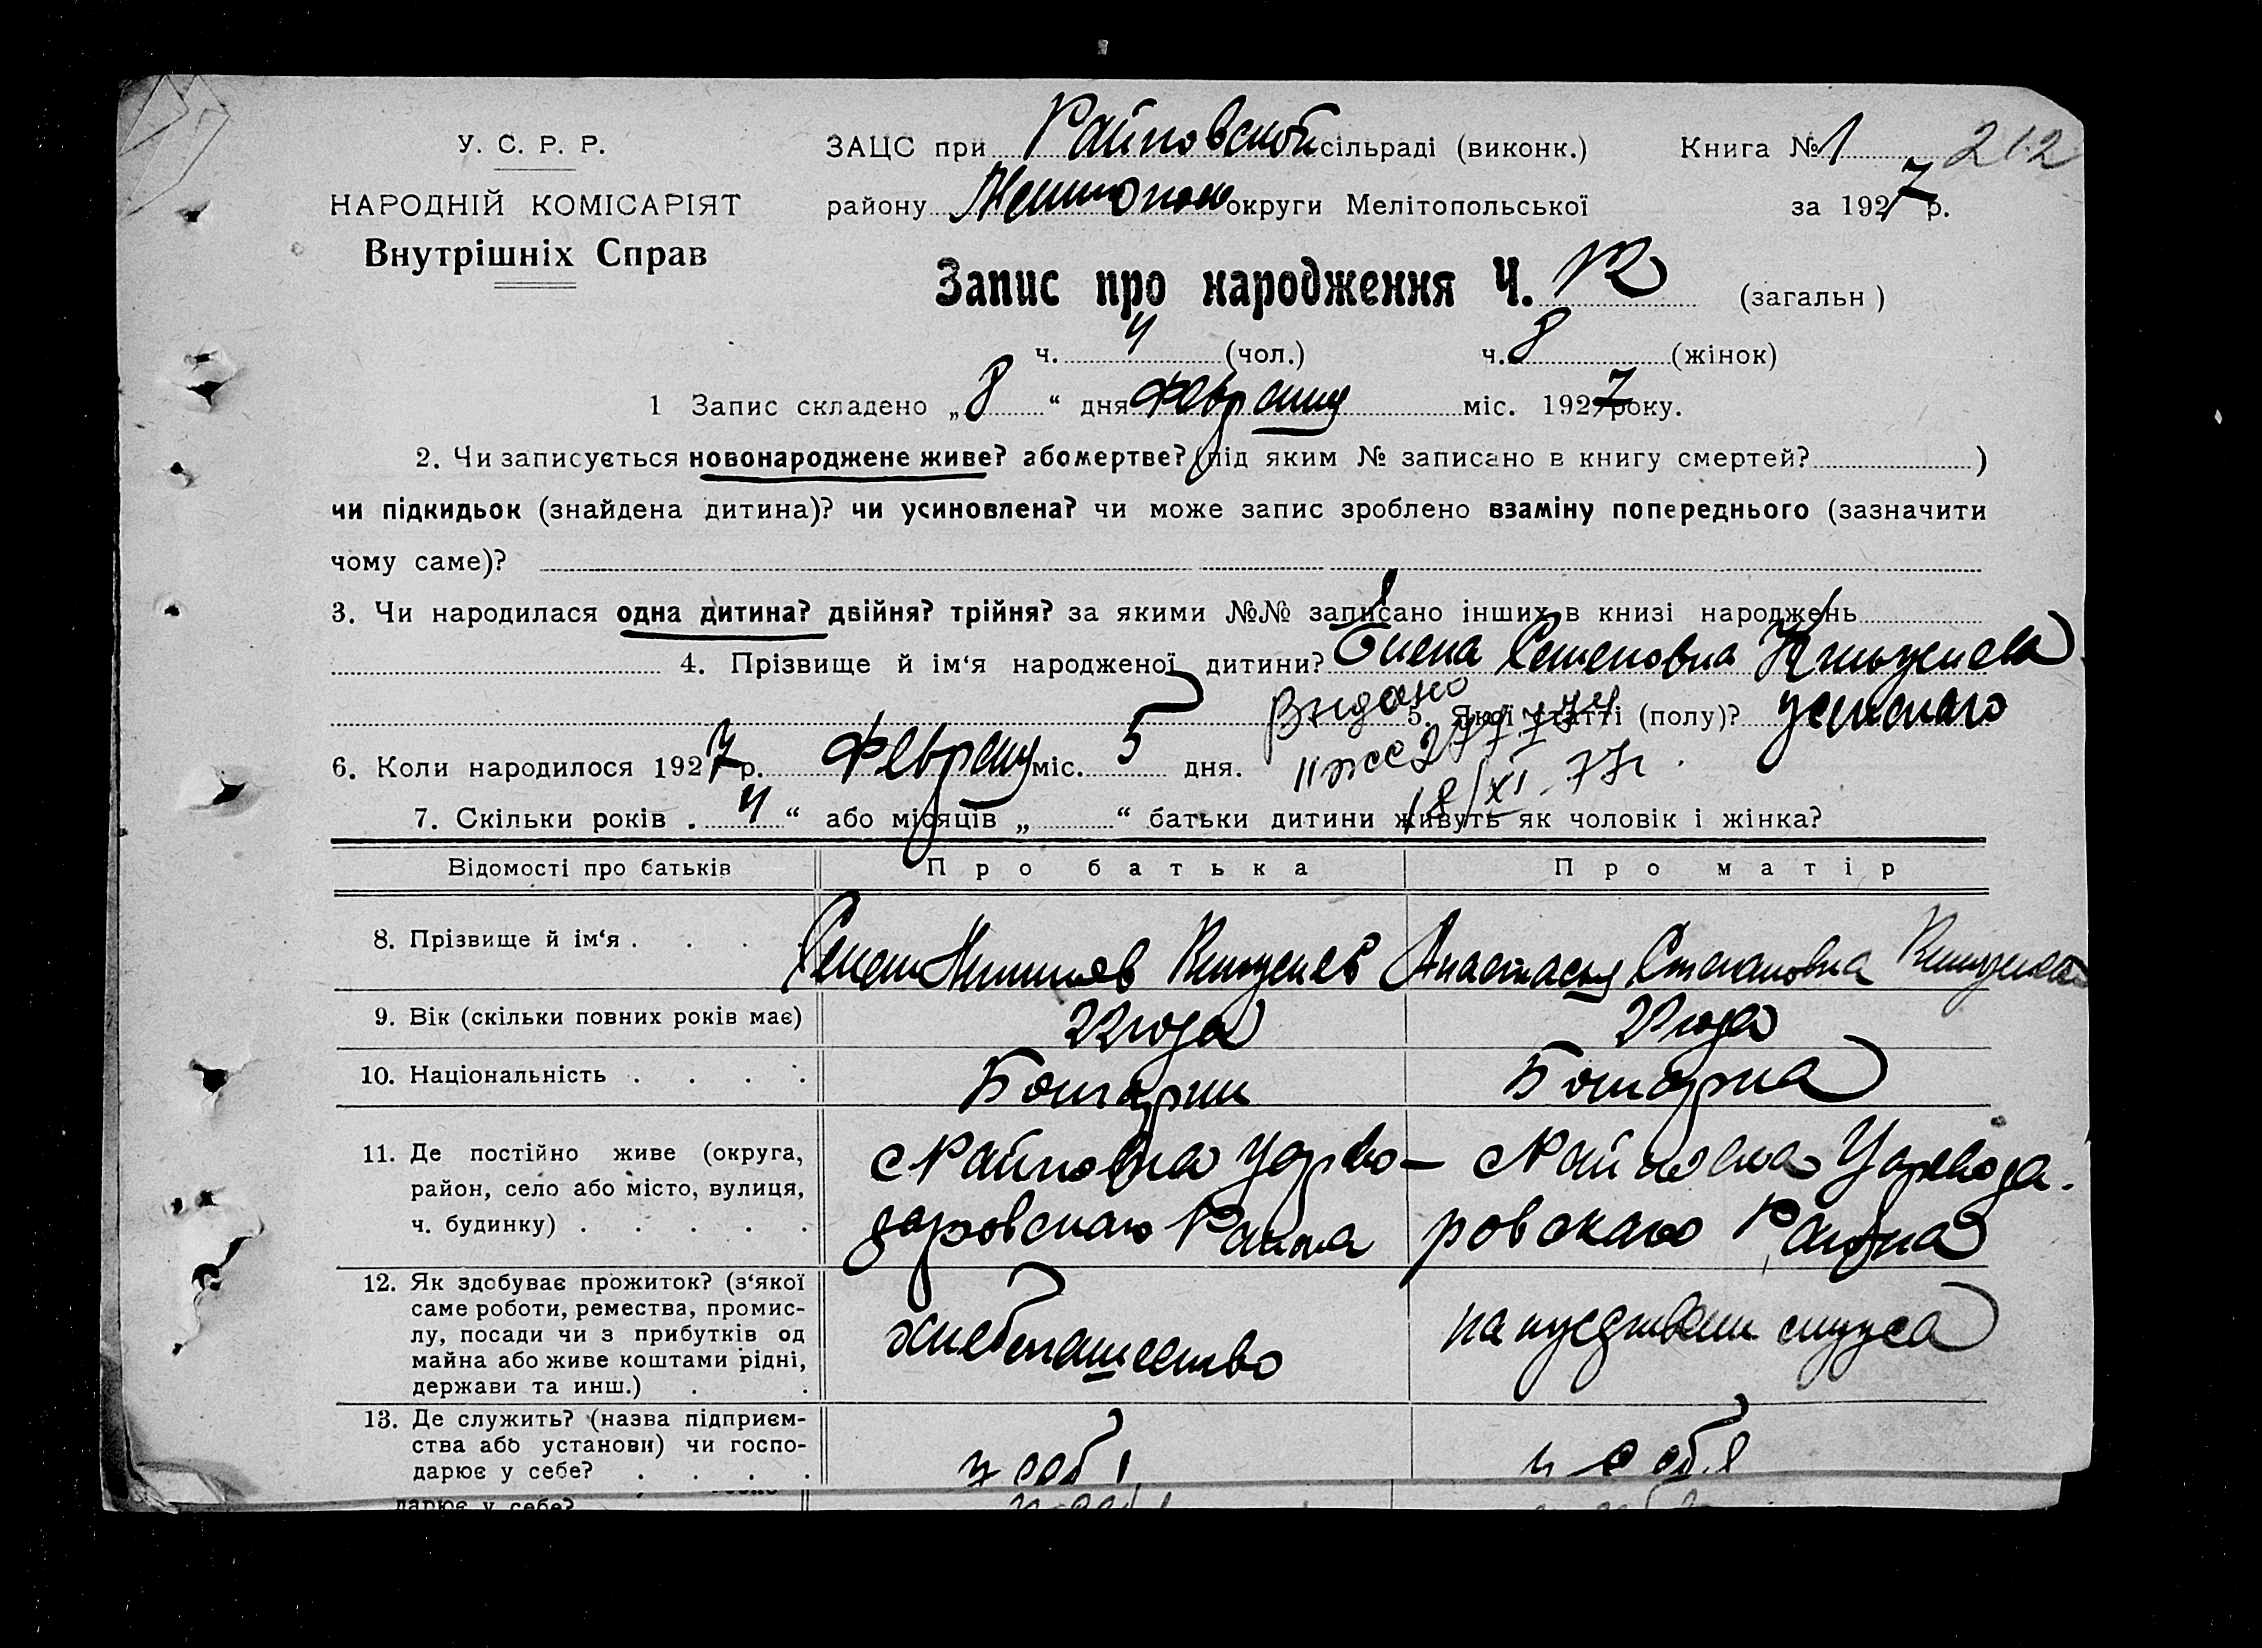 У. С. Р. Р.
НАРОДНІЙ КОМІСАРІЯТ
Внутрішніх Справ
ЗАЦС при Райновской сільраді (виконк.) Книга № 1 212
району округи Мелітопольської за 1927 р.
Запис про народження Ч. 12 (загальн )
ч. 4 (чол.) ч. 8 (жінок)
1 Запис складено „ 8 “ дня февраля міс. 1927 року.
2. Чи записується новонароджене живе? або мертве? (під яким № записано в книгу смертей? )
чи підкидьок (знайдена дитина)? чи усиновлена? чи може запис зроблено взаміну попереднього (зазначити
чому саме)?
3. Чи народилася одна дитина? двійня? трійня? за якими №№ записано інших в книзі народжень
4. Прізвище й ім‘я народженої дитини? Елена Семеновна
Видано
5. Якої статті (полу)? женскаго
6. Коли народилося 1927 р. февраля міс. 5 дня.
18/XI-77г
7. Скільки років „ 4 “ або місяців „ “ батьки дитини живуть як чоловік і жінка?
Відомості про батьків Про батька Про матір
8. Прізвище й ім‘я . Семен Анастасия Степановна
9. Вік (скільки повних років має) 22 года 22 года
10. Національність . Болгарин Болгарка
11. Де постійно живе (округа, с Райновка Царево- с Райновка Царевода-
район, село або місто, вулиця,
ч. будинку) . даровскаго Района ровскаго Района
12. Як здобуває прожиток? (з‘якої
саме роботи, ремества, промис-
лу, посади чи з прибутків од хлебопашество на иждивении мужа
майна або живе коштами рідні,
держави та инш.) .
13. Де служить? (назва підприєм-
ства або установи) чи госпо-
дарює у себе? . у себя у себя
дарює у себе?